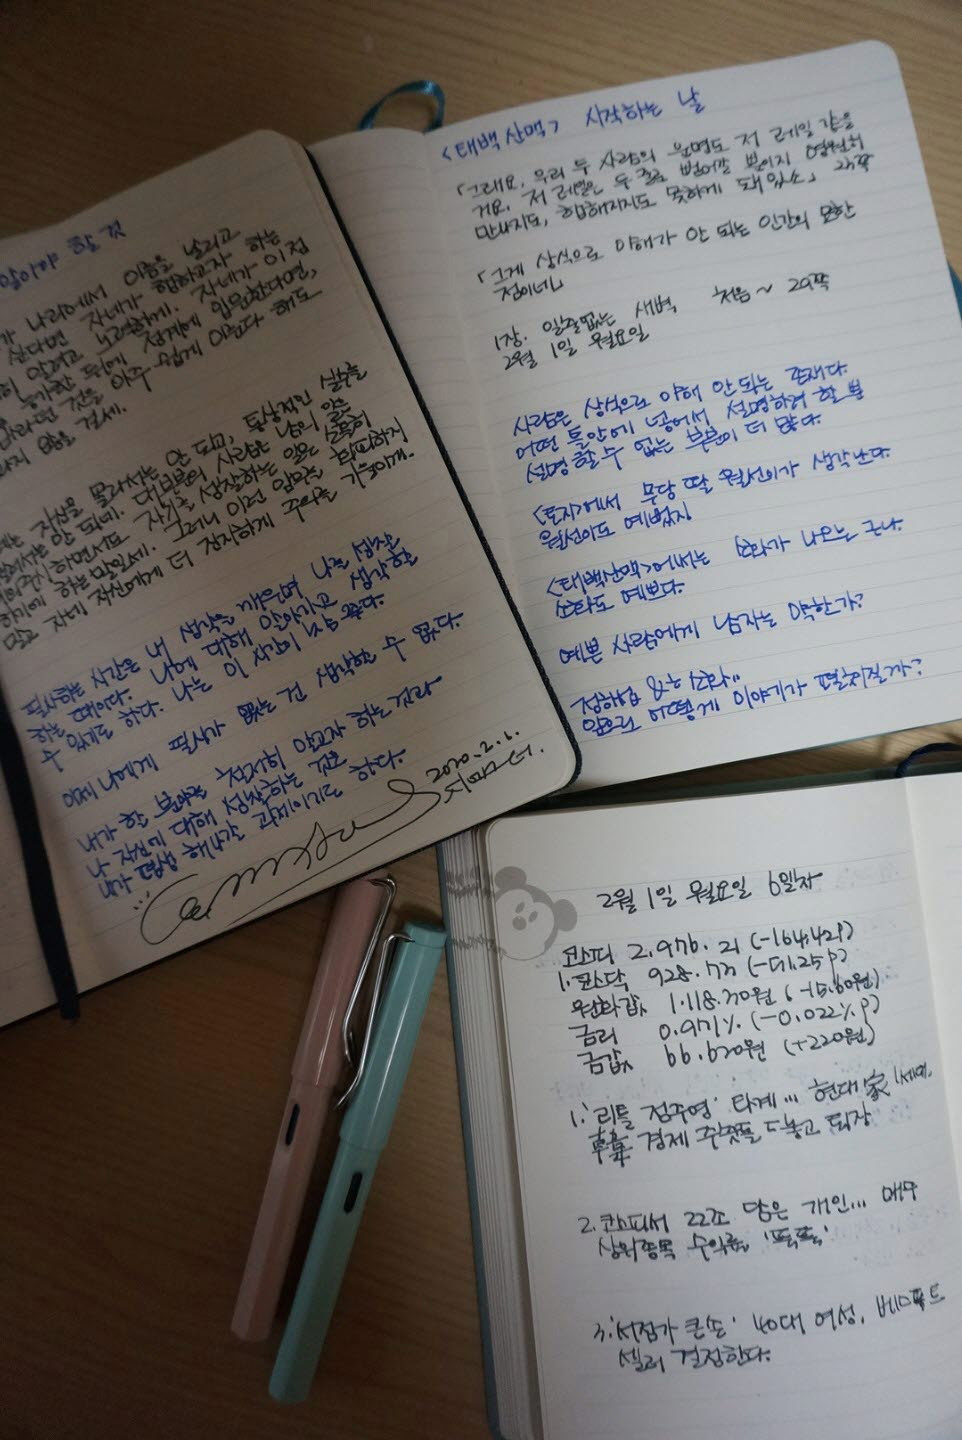 알아야 할 것
가 나라에서 이름을 날리고
싶다면 자네가 합하고자 하는
히 알려고 노력하게. 자네가 이점
뒤에 정계에 입문한다면,
바라던 것을 아주 쉽게 이룬다 해도
지 않을 걸세.
자신을 몰라서는 안 되고, 통상적인 실수를
해서는 안 되네. 대부분의 사람은 남의 일은
하면서도 자기를 성찰하는 일은
하기에 하는 말일세. 그러니 이런 임무를 회피하지
말고 자네 자신에게 더 진지하게 주의를 기울이게.
필사하는 시간은 내 생각을 깨우며 나를 성장
하는 때이다. 나에 대해 이야기고 생각할
수 있게도 하다. 나는 이 시간이 너무 좋다.
이제 나에게 필사가 없는 건 생각할 수 없다.
내가 할 분야를 철저히 알고자 하는 것과
나 자신에 대해 성찰하는 것은
내가 평생 해나갈 과제이기도 하다.
<태백산맥> 시작하는 날
「그래요, 우리 두 사람의 운명도 저 레일 같을
거요. 저 레일은 두 줄로 벌어갈 뿐이지 영원히
만나지도, 합해지지도 못하게 돼있소」 23쪽
「그게 상식으로 이해가 안 되는 인간의 묘한
점이네」
1장. 일출없는 새벽 처음 ~ 29쪽
2월 1일 월요일
사람은 상식으로 이해 안 되는 존재다.
어떤 틀안에 넣어서 설명하려 할 뿐
설명 할 수 없는 부분이 더 많다.
<토지>에서 무당 딸 월선이가 생각난다.
월선이도 예뻤지
<태백산맥>에서는 소화가 나오는 구나.
소화도 예쁘다.
예쁜 사람에게 남자는 약한가?
정하섭 &는 소화..
앞으로 어떻게 이야기가 펼쳐질까?
2월 1일 월요일 6일차
코스피 2.976.21 (-164.42P)
1.코스닥 928.73 (-51.25P)
원화값 1.118.30원 (-15.60원)
금리 0.971% (-0.022%P)
금값 66.620원 (+220원)
1.'리틀 정주영' 타계... 현대家 1세대.
경제 주춧돌 놓고 퇴장
2.코스피서 22조 담은 개인... 매수
상위종목 수익률 '뚝뚝'
3.'서점가 큰손' 40대 여성, 베스트
셀러 결정한다.